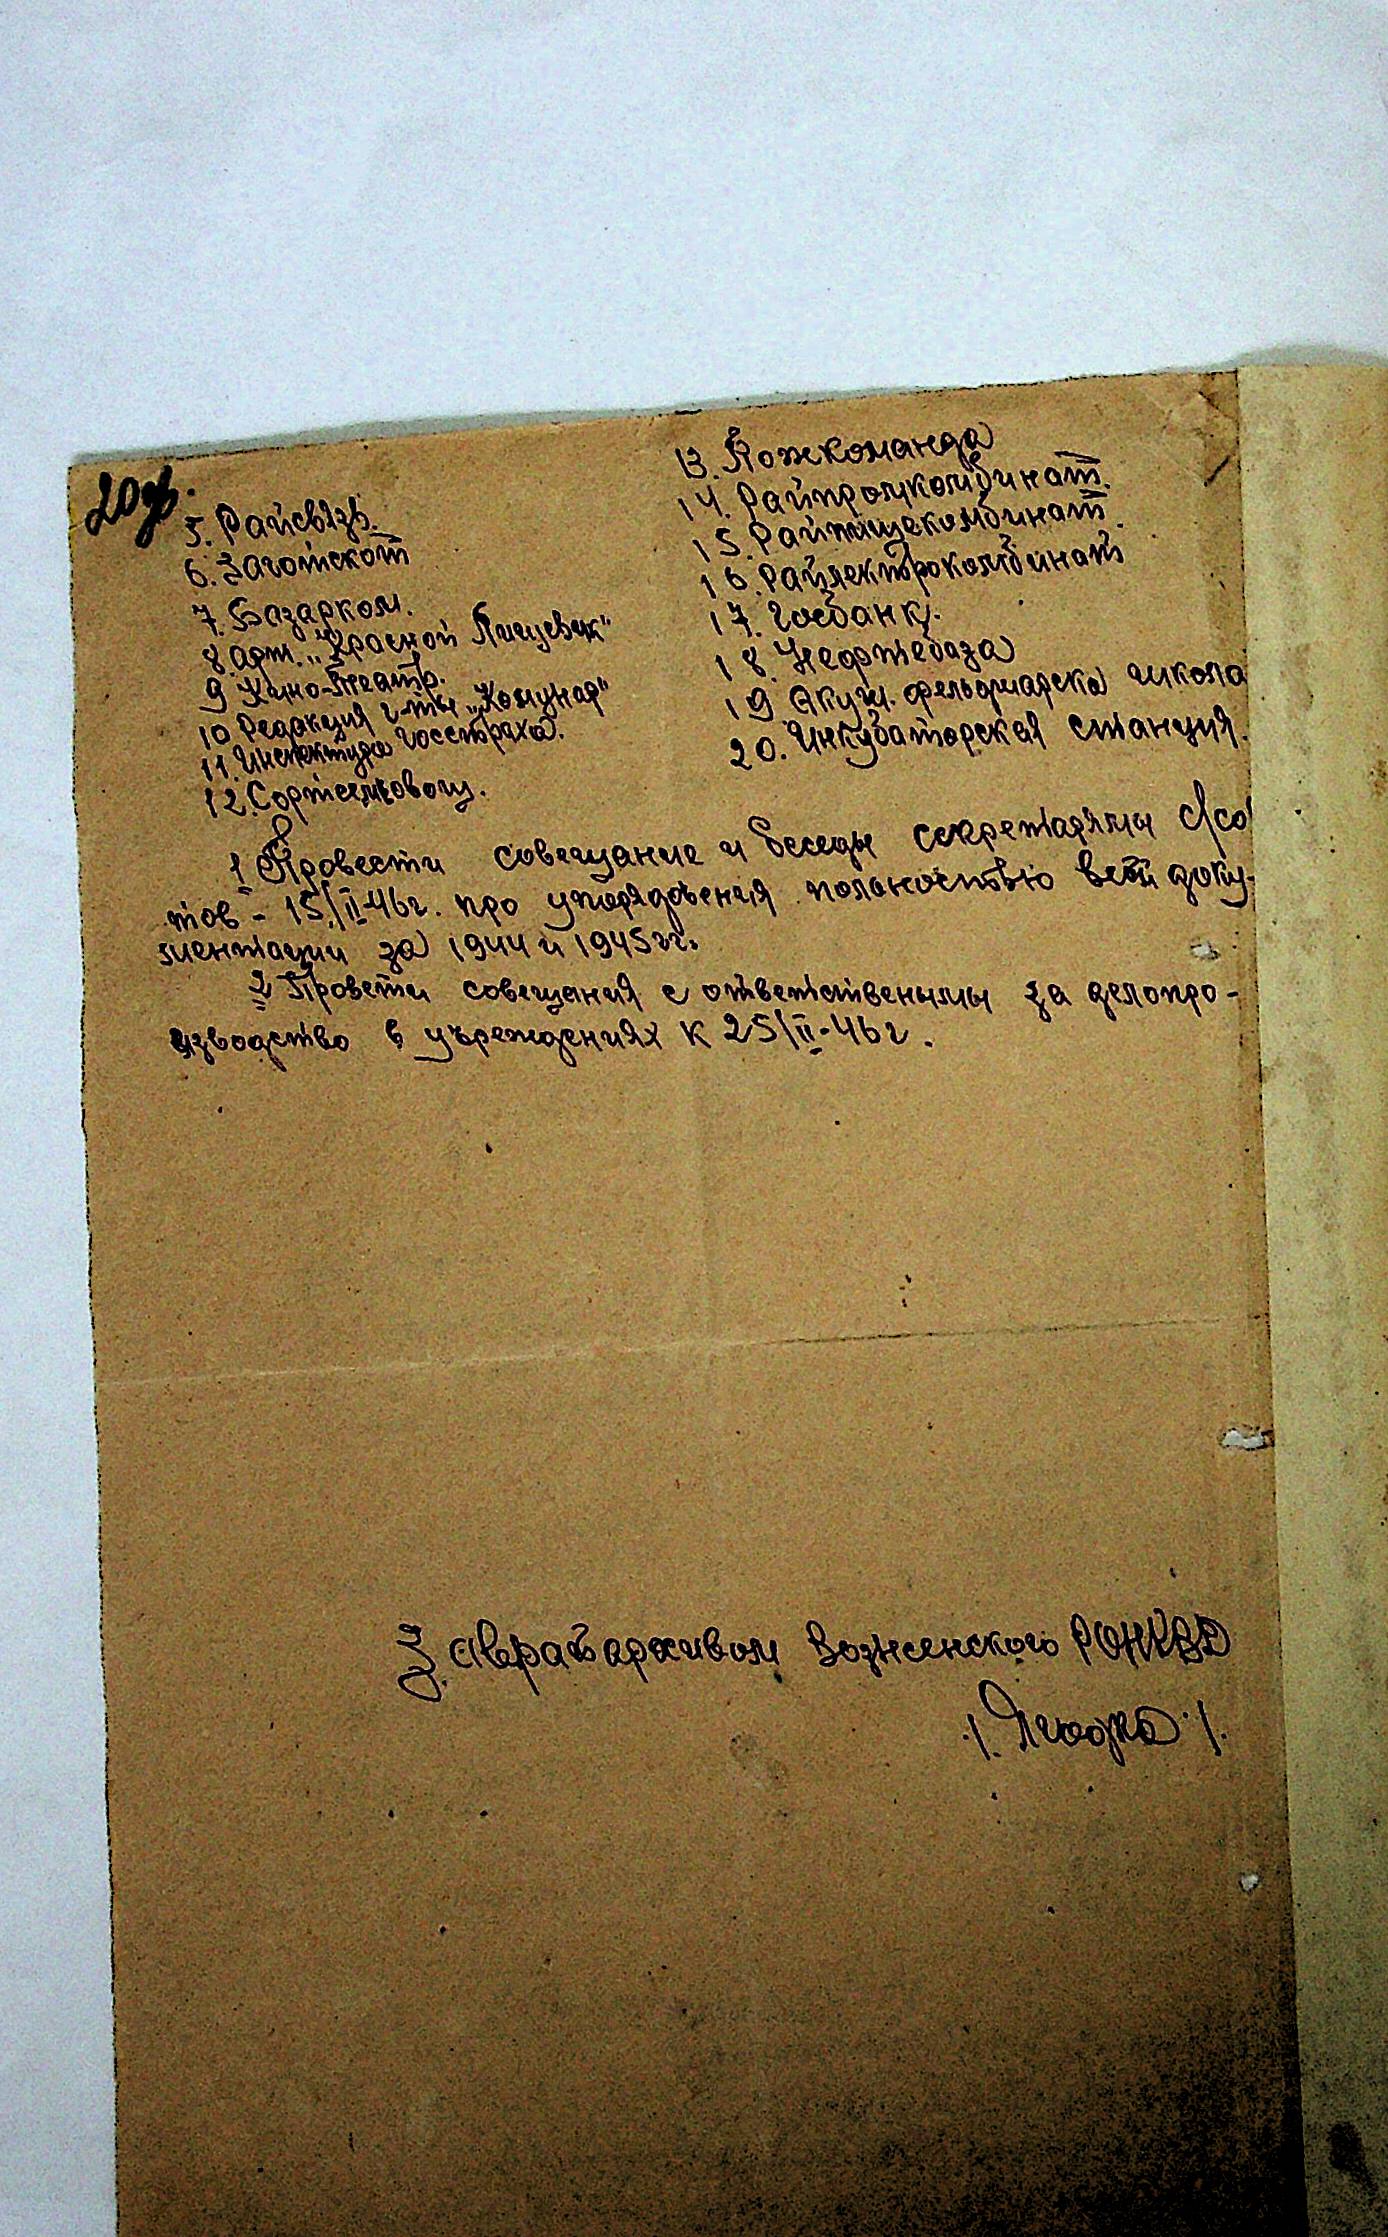 20об.
5. Райсвязь.
6. Заготскот
7. Базарком.
8. арт. „Красной Пищевик"
9. Кино-Театр.
10 Редакция г-ты „Комунар"
11. Инспектура Госстраха.
12. Сортсемовощ.
13. Пожкоманда
14. Райпромкомбинат.
15. Райпищекомбинат.
16. Райлектрокомбинат
17. Госбанку.
18. Нефтебаза
19 Акуш. фельдшарска школа
20. Инкубаторская станция.
1 Провести совещание и беседы секретарямы с/со
тов - 15/II-46г. про упорядочения полоностью всей доку-
ментации за 1944 и 1945гг.
2 Провести совещания с ответственымы за делопро-
изводство в учреждениях к 25/II-46г.
Заврайархивом Вознсенского РОНКВД
./. Ягодка ./.